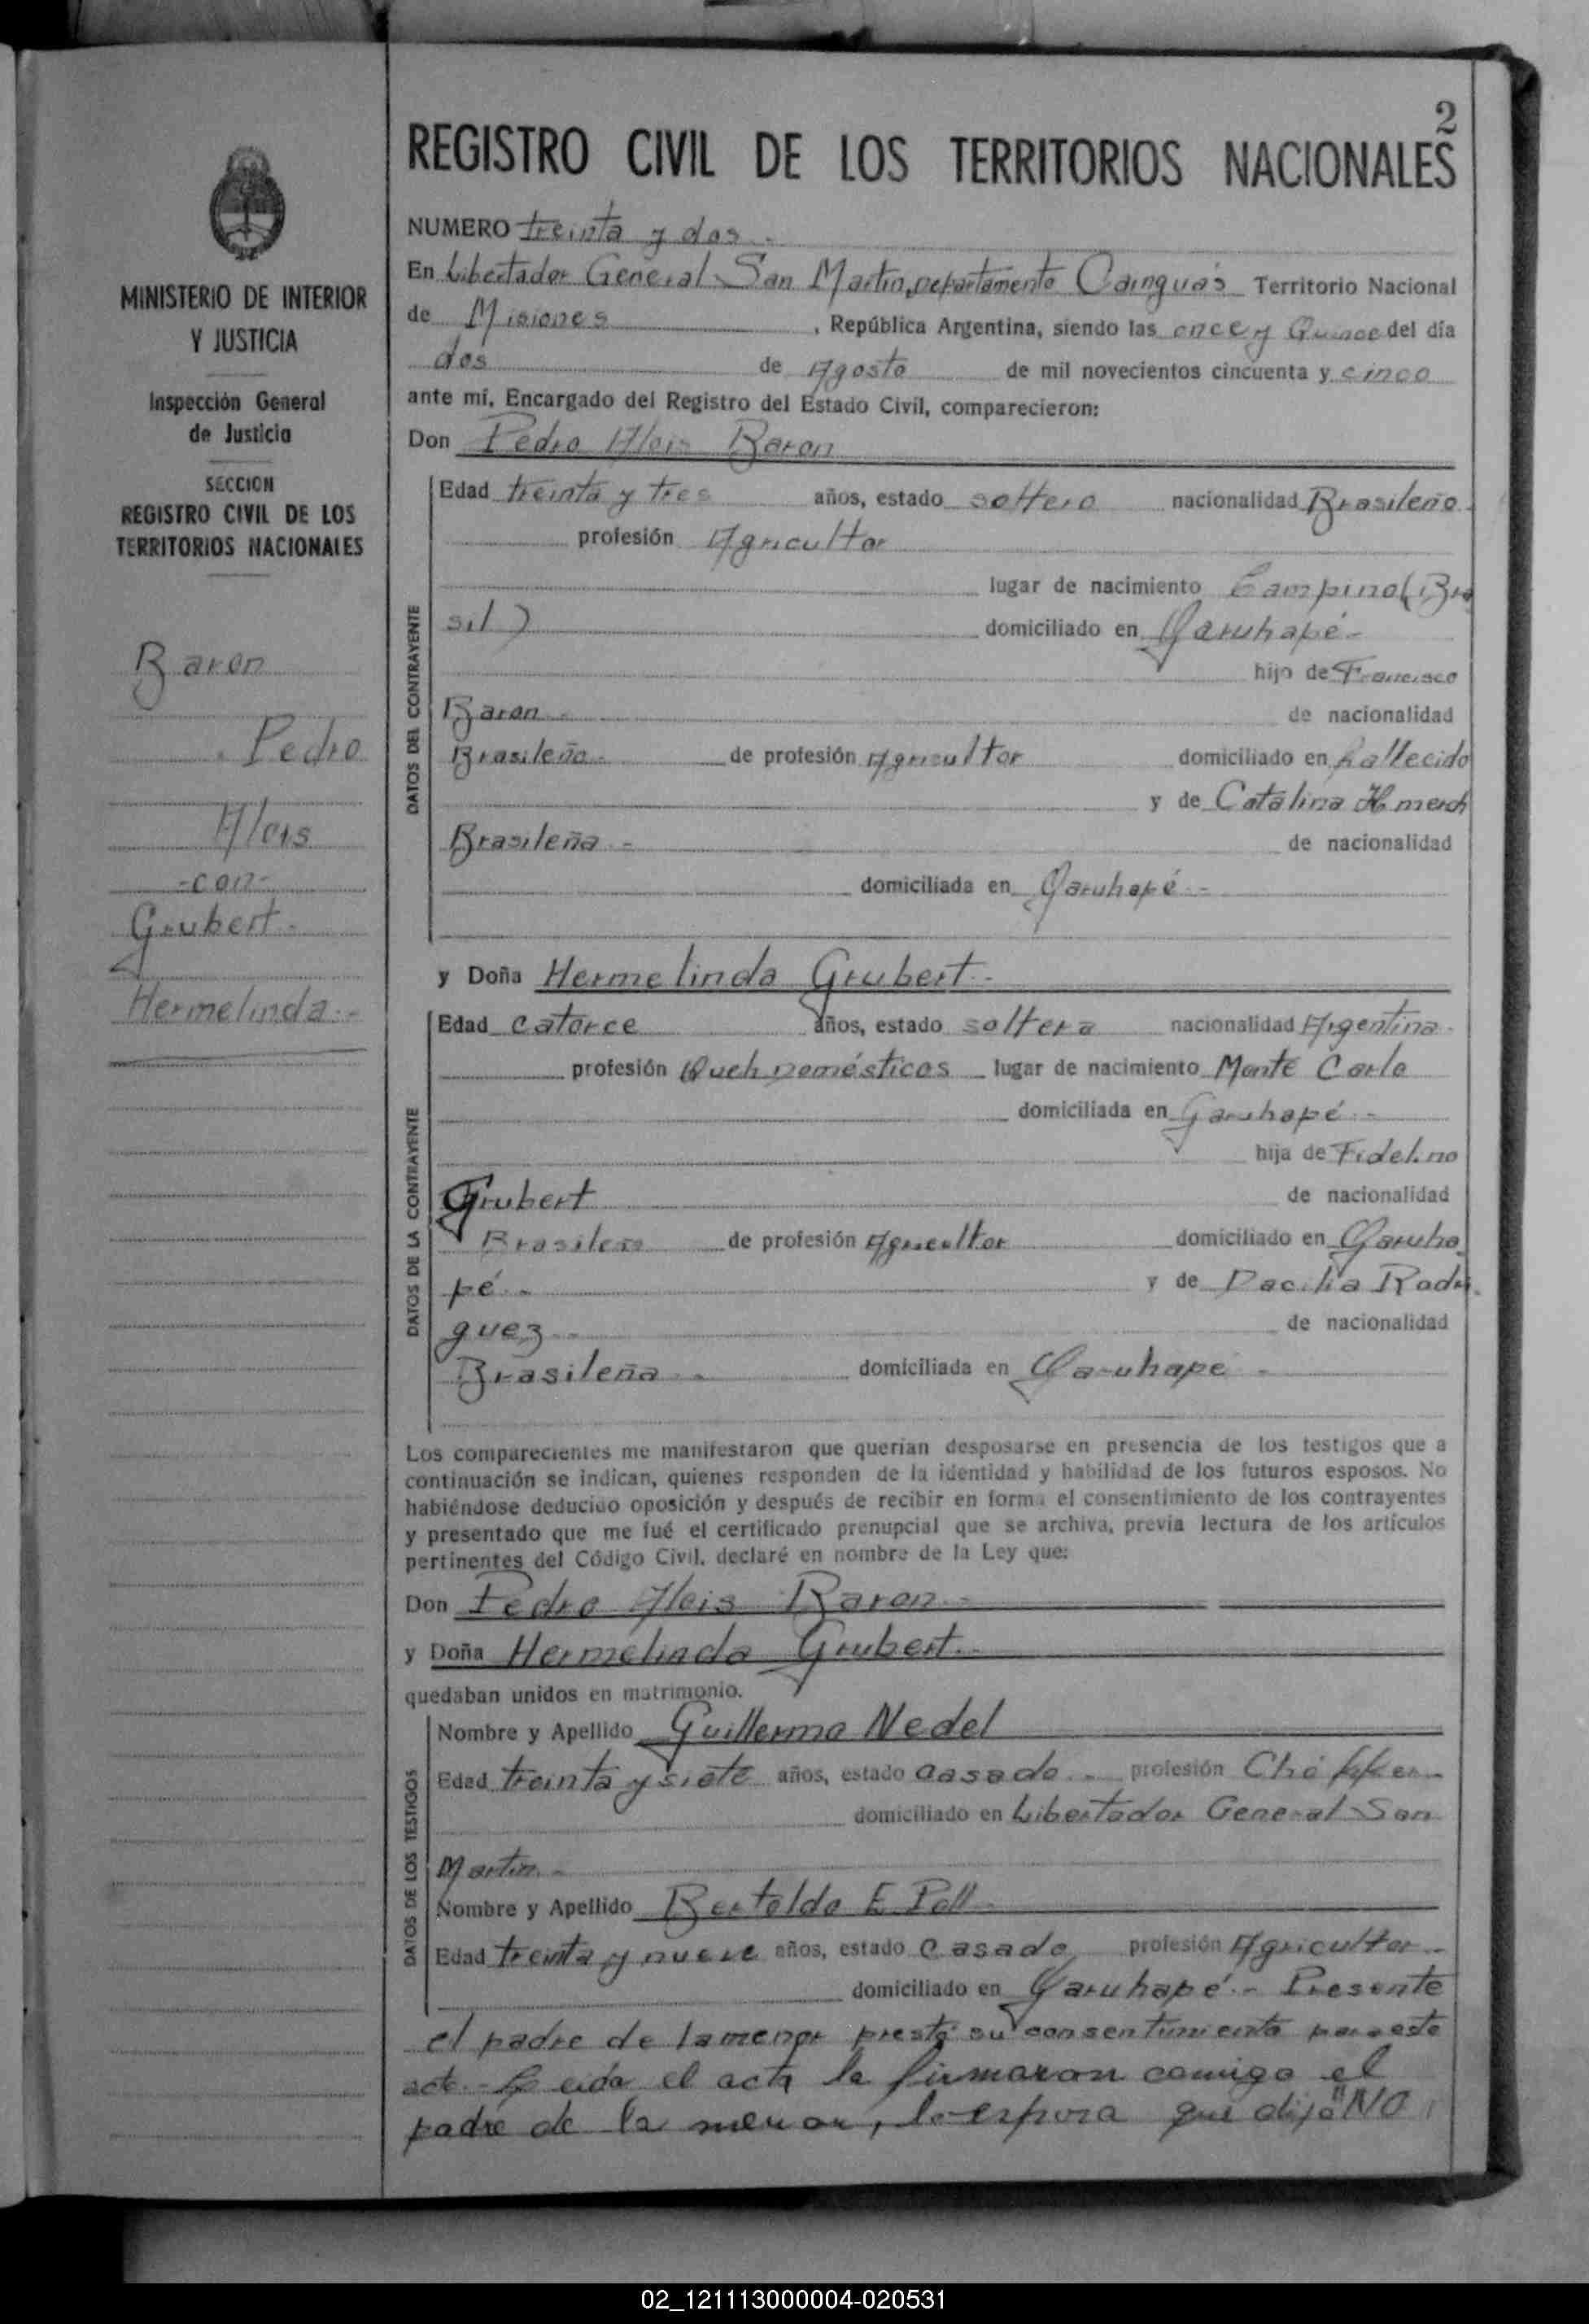 2
REGISTRO CIVIL DE LOS TERRITORIOS NACIONALES
MINISTERIO DE INTERIOR
Y JUSTICIA
Inspección General
de Justicia
SECCION
REGISTRO CIVIL DE LOS
TERRITORIOS NACIONALES
Baron
Pedro
Alois
-con-
Grubert.-
Hermelinda.-
NUMERO treinta y dos.-
En Libertador General San Martin, departamento Cainguás Territorio Nacional
de Misiones , República Argentina, siendo las once y Quince del día
dos de Agosto de mil novecientos cincuenta y cinco
ante mí, Encargado del Registro del Estado Civil, comparecieron:
Don Pedro Alois Baron
DATOS DEL CONTRAYENTE
Edad treinta y tres años, estado soltero nacionalidad Brasileño
profesión Agricultor
lugar de nacimiento Campinol (Bra
sil) domiciliado en Garuhapé-
hijo de Francisco
Baron.- de nacionalidad
Brasileño.- de profesión Agricultor domiciliado en Fallecido
y de Catalina
Brasileña.- de nacionalidad
domiciliada en Garuhapé.-
y Doña Hermelinda Grubert.-
DATOS DE LA CONTRAYENTE
Edad catorce años, estado soltera nacionalidad Argentina.
profesión Queh Domésticos lugar de nacimiento Monte Carlo
domiciliada en Garuhapé.-
hija de Fidelino
Grubert de nacionalidad
Brasileño de profesión Agricultor domiciliado en Garuha
pé.- y de Dacilia Rodri
guez.- de nacionalidad
Brasileña.- domiciliada en Garuhapé.-
Los comparecientes me manifestaron que querían desposarse en presencia de los testigos que a
continuación se indican, quienes responden de la identidad y habilidad de los futuros esposos. No
habiéndose deducido oposición y después de recibir en forma el consentimiento de los contrayentes
y presentado que me fué el certificado prenupcial que se archiva, previa lectura de los artículos
pertinentes del Código Civil, declaré en nombre de la Ley que:
Don Pedro Alois Baron.-
y Doña Hermelinda Grubert.-
quedaban unidos en matrimonio.
DATOS DE LOS TESTIGOS
Nombre y Apellido Guillermo Nedel
Edad treinta y siete años, estado casado.- profesión Chóffer.-
domiciliado en Libertador General San
Martin.-
Nombre y Apellido Bertoldo E Poll
Edad treinta y nueve años, estado casado profesión Agricultor.-
domiciliado en Garuhapé.- Presente
el padre de la menor prestó su consentimiento para este
acto.- Leida el acta la firmaron comigo el
padre de la menor, la esposa que dijo "NO
02_121113000004-020531